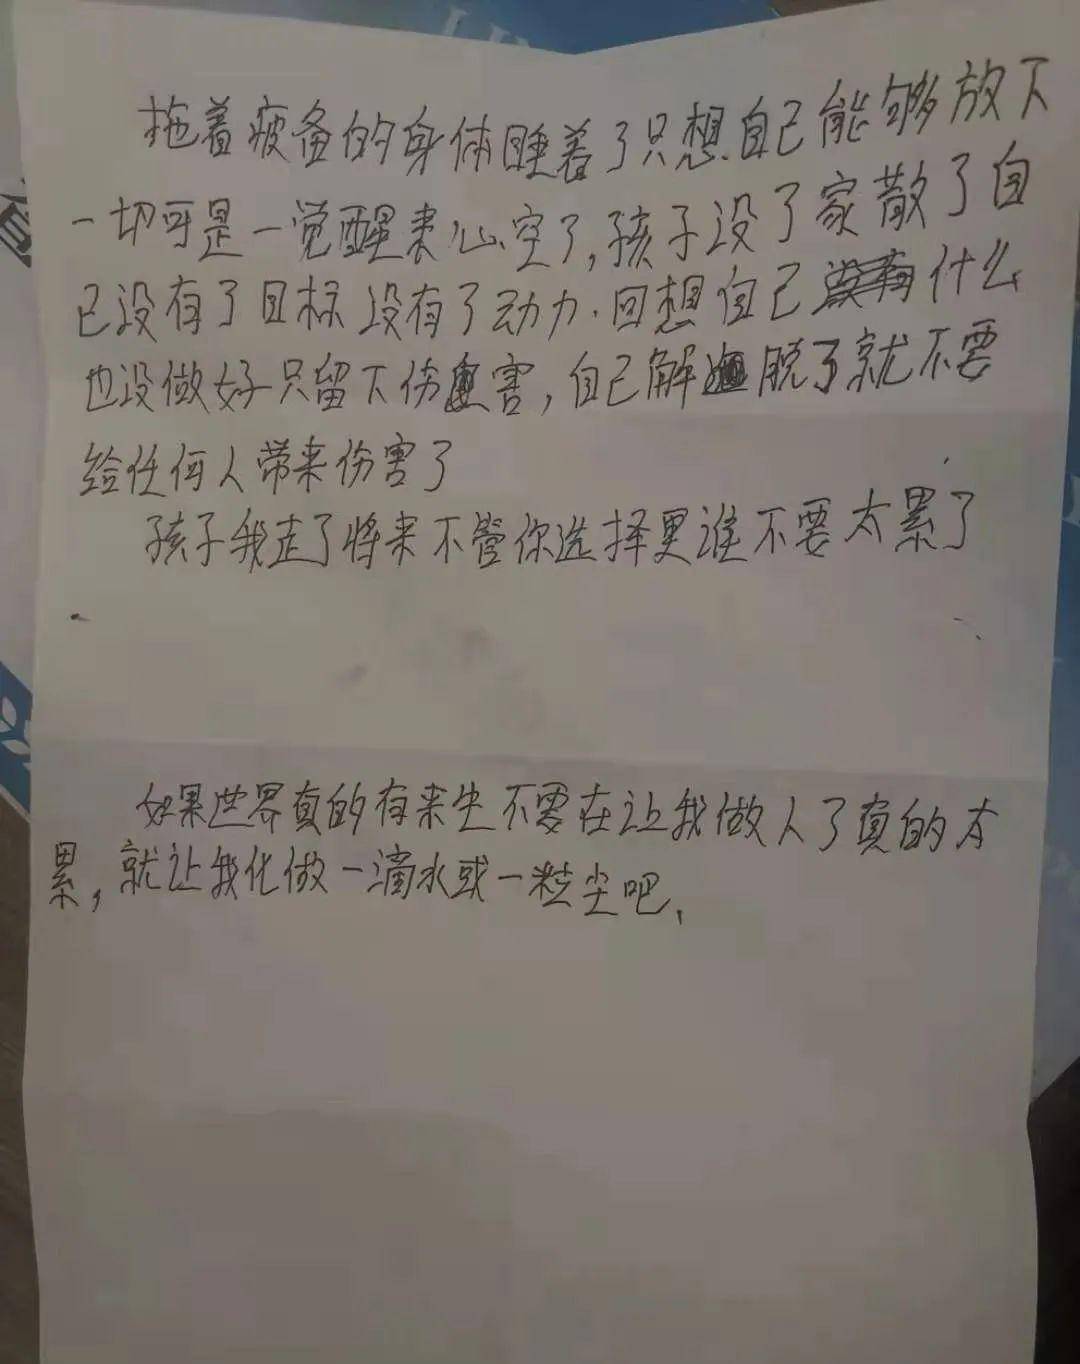 拖着疲惫的身体睡着了只想自己能够放下
一切可是一觉醒来心空了,孩子没了家散了自
己没有了目标没有了动力.回想自己什么
也没做好只留下伤害,自己解脱了就不要
给任何人带来伤害了
孩子我走了将来不管你选择更谁不要太累了
如果世界真的有来生不要在让我做人了真的太
累,就让我化做一滴水或一粒尘吧、